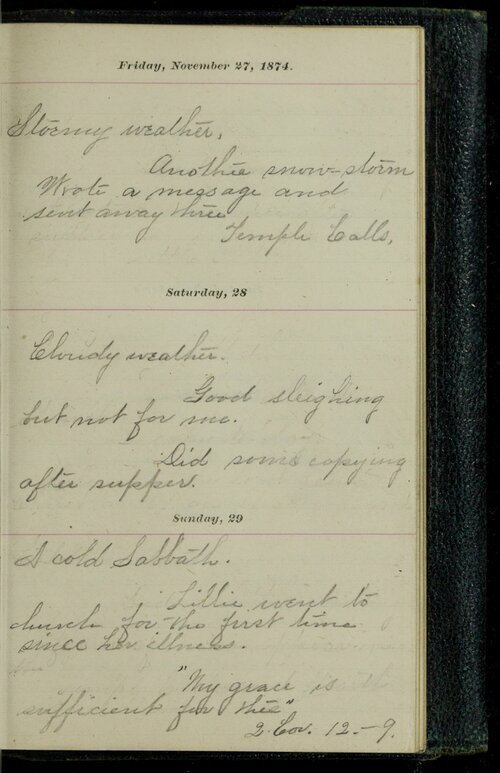 Friday, November 27, 1874.
Stormy weather,
Another snow-storm
Wrote a message and
sent away three
Temple Calls.
Saturday, 28
Cloudy weather.
Good sleighing
but not for me.
Did some copying
after supper.
Sunday, 29
A cold Sabbath.
Lillie went to
church for the first time
since her illness.
"My grace is
sufficient for thee"
2. Cor. 12.-9.